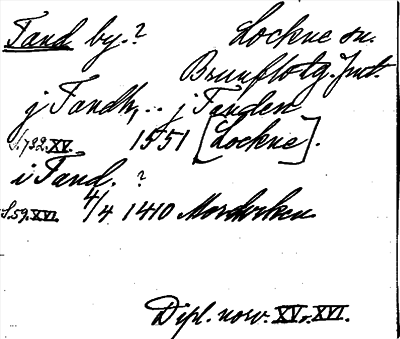 Tand by.? Lockne sn.
Brunflotg. Jmt.
j Tandh, .. j Tanden
S.732.XV. 1551 [Lockne].
i Tand. ?
S.59.XVI. 4/4 1410 Mordviken
Dipl. norv. XV o. XVI.